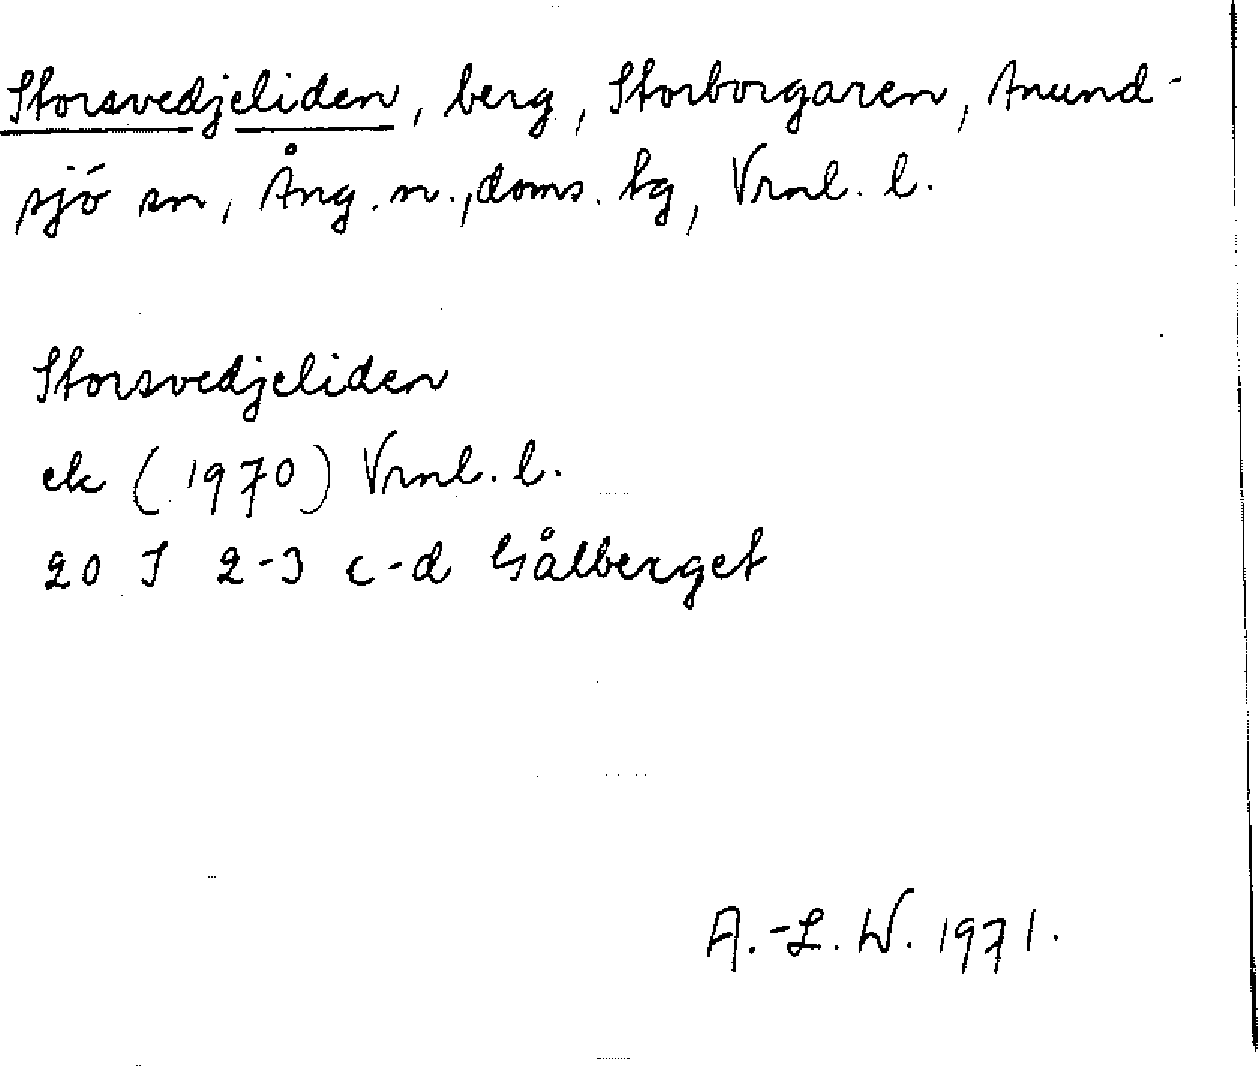 Storsvedjeliden, berg, Storborgaren, Anund-
sjö sn, Ång. n., doms. tg, Vrnl. l.
Storsvedjeliden
ek (1970) Vrnl. l.
20 I 2-3 c-d Gålberget
A.-L. W. 1971.